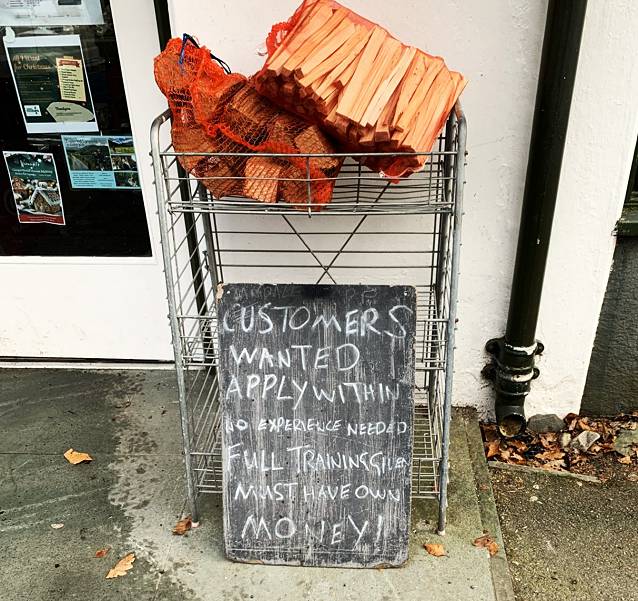 CUSTOMERS
WANTED
APPLY WITHIN
NO EXPERIENCE NEEDED
FULL TRAINING GIVEN
MUST HAVE OWN
MONEY!
for Christmas